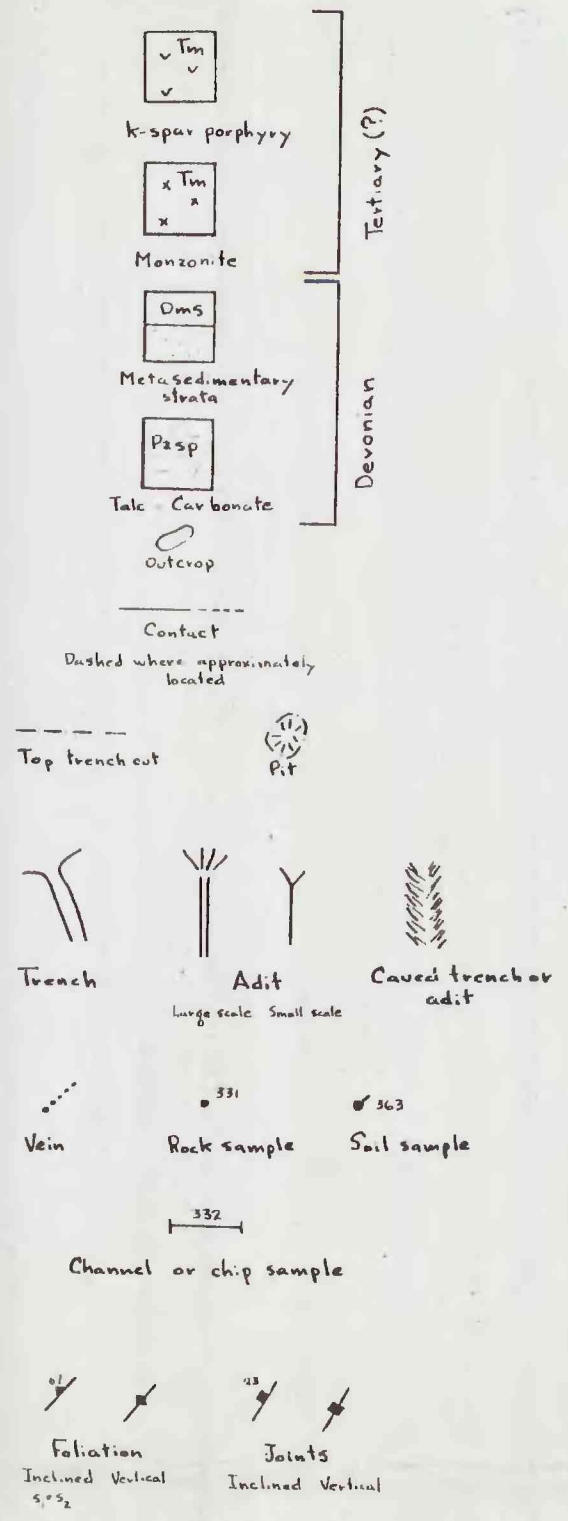 Tm
k-spar porphyry
Tm
Monzonite
Tertiary (?)
Dms
Metasedimentary
strata
Pzsp
Talc Carbonate
Devonian
Outcrop
Contact
Dashed where approximately
located
Top trench cut
Pit
Trench
Adit
Large scale Small scale
Caved trench or
adit
331
363
Vein
Rock sample
Soil sample
332
Channel or chip sample
23
Foliation
Inclined Vertical
Joints
Inclined Vertical